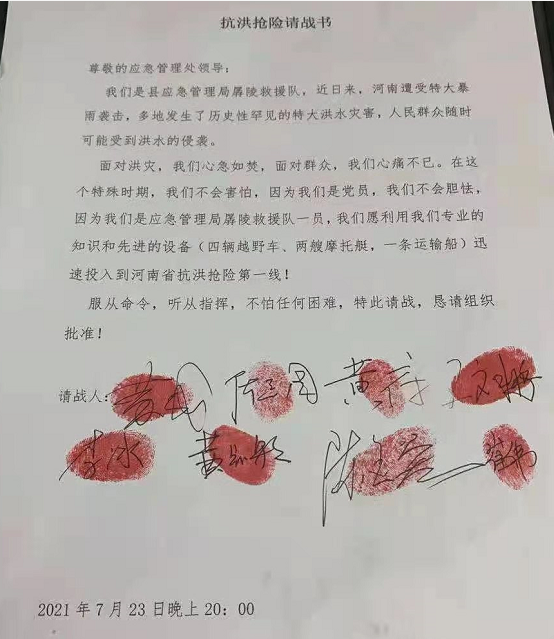 抗洪抢险请战书
尊敬的应急管理处领导：
我们是县应急管理局孱陵救援队，近日来，河南遭受特大暴
雨袭击，多地发生了历史性罕见的特大洪水灾害，人民群众随时
可能受到洪水的侵袭。
面对洪灾，我们心急如焚，面对群众，我们心痛不已。在这
个特殊时期，我们不会害怕，因为我们是党员，我们不会胆怯，
因为我们是应急管理局孱陵救援队一员，我们愿利用我们专业的
知识和先进的设备（四辆越野车、两艘摩托艇，一条运输船）迅
速投入到河南省抗洪抢险第一线！
服从命令，听从指挥，不怕任何困难，特此请战，恳请组织
批准！
请战人：
李冰
2021 年 7 月 23 日晚上 20：00